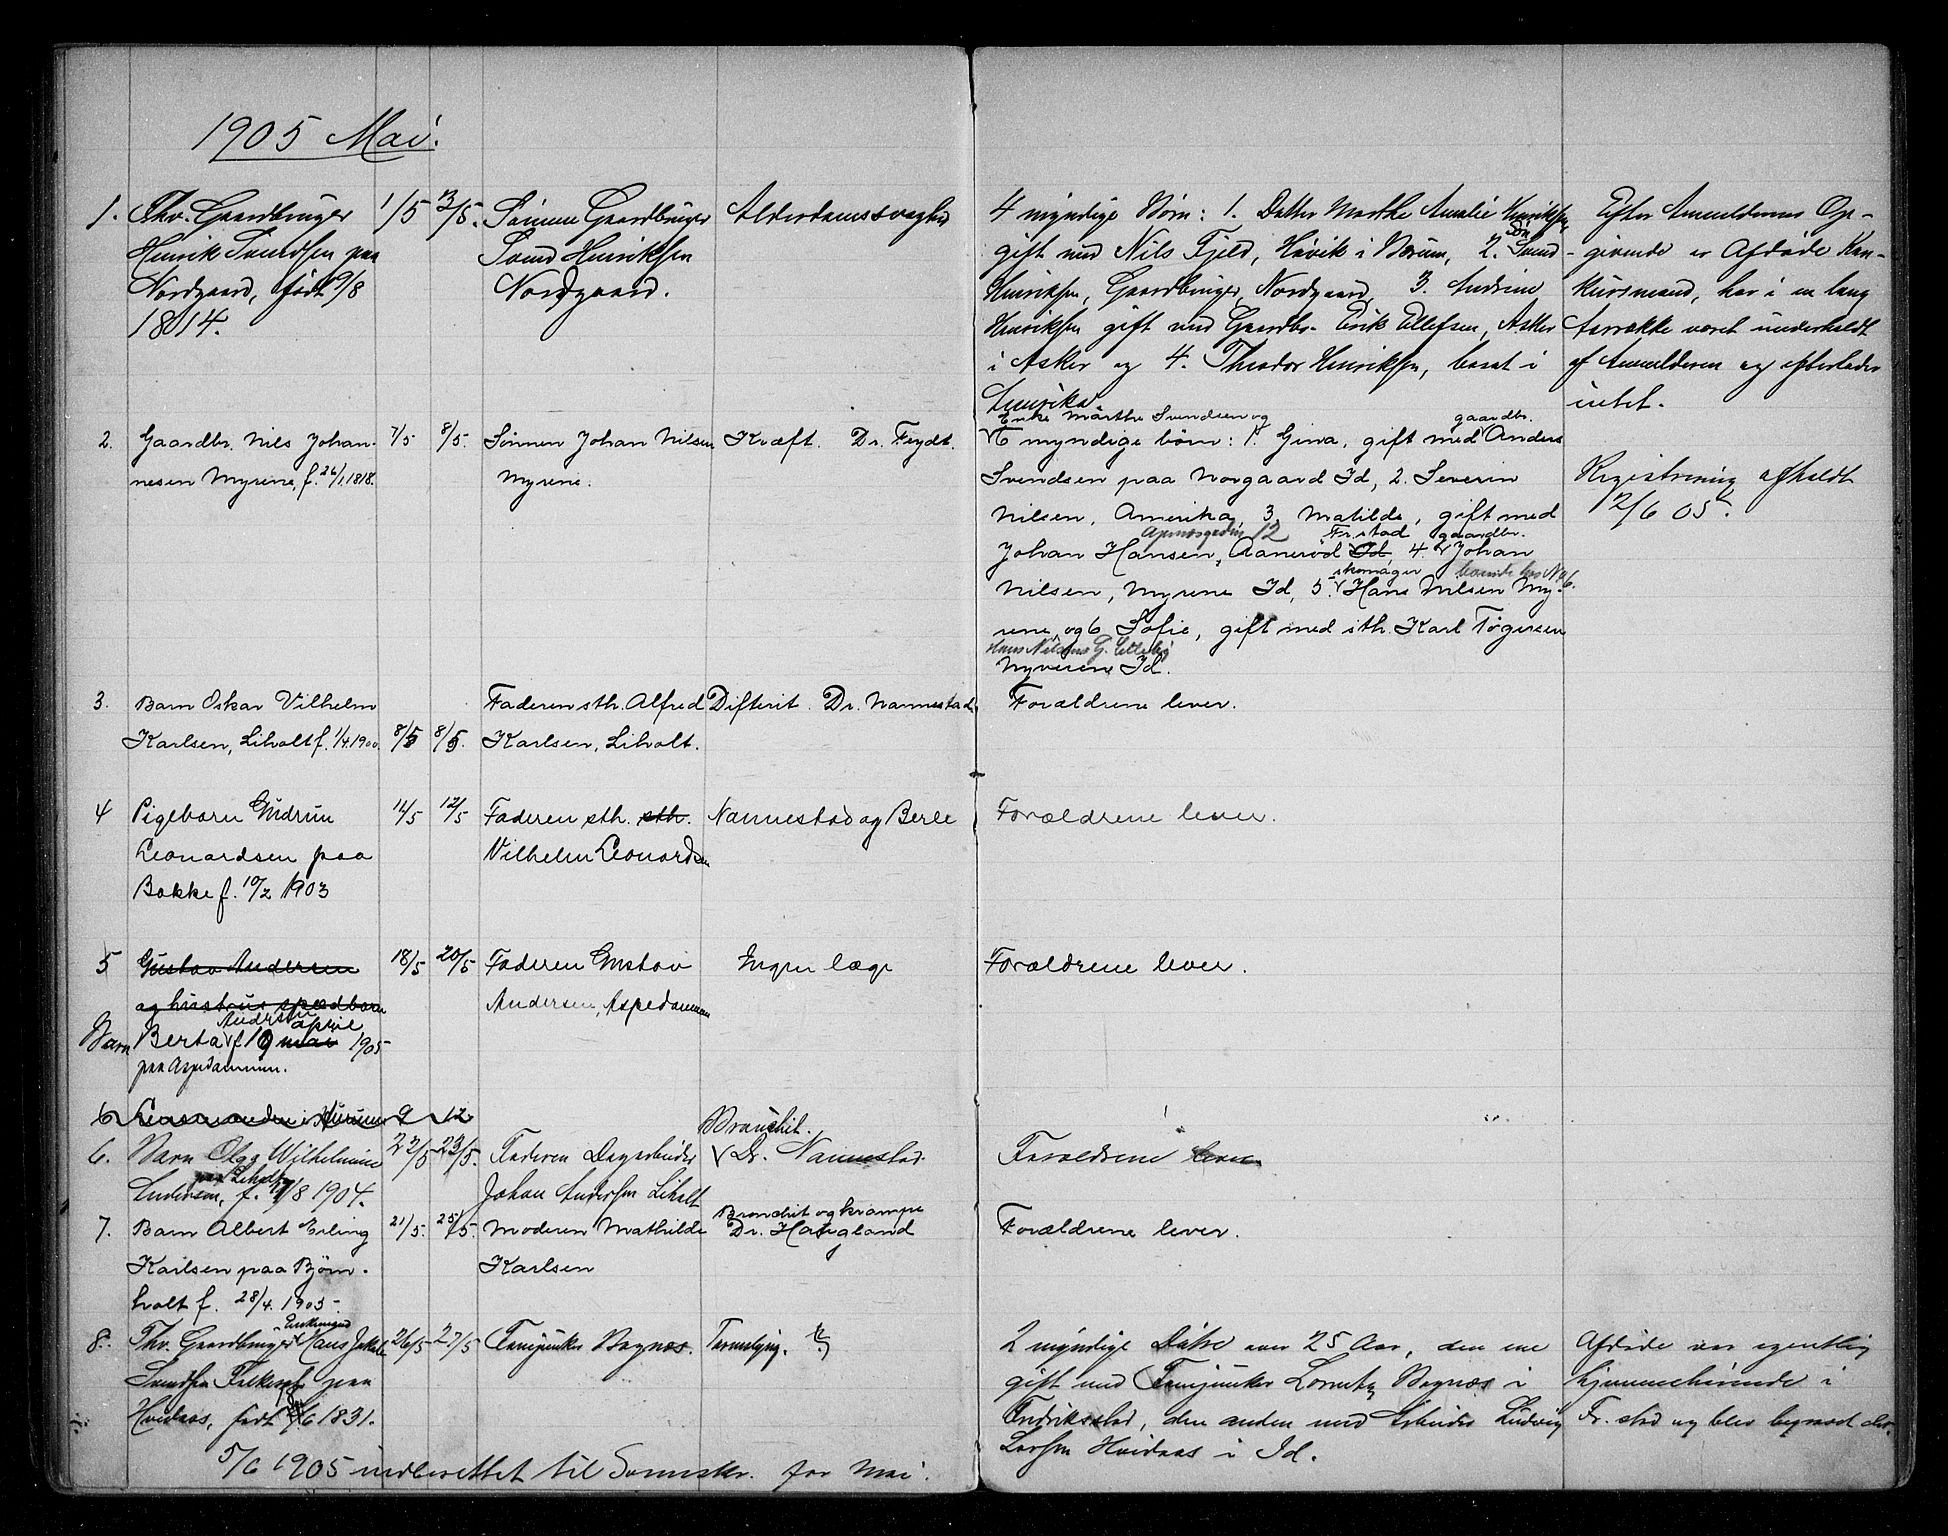 1905 Mai.
1. Fhv. Gaardbruger 1/5 3/5. Sønnen Gaardbruger Alderdomssvaghed 4 myndige Børn: 1. Datter Marthe Amalie Henriksen Efter Anmelderens Op-
Henrik Svendsen paa Svend Henriksen gift med Nils Fjeld, Høvik i Bærum, 2. Søn Svend givende er Afdøde Kon-
Nordgaard, født 9/8 Nordgaard. Henriksen, Gaardbruger, Nordgaard, 3. Andrine kursmand, har i en lang
1814. Henriksen gift med Gaardbr. Erik Ellefsen, Asker Aarrække været underholdt
i Asker og 4. Theodor Henriksen, bosat i af Anmelderen og efterlader
Amerika. intet.
Enke Marthe Svendsen og gaardbr.
2. Gaardbr. Nils Johan- 7/5 8/5. Sønnen Johan Nilsen Kræft. Dr. Feydt. 6 myndige børn: 1. Gina, gift med Anders
nesen Myrene, f. 26/1 1818. Myrene. Svendsen paa Norgaard Id, 2. Severin Registrering afholdt
Nilsen, Amerika, 3. Matilde, gift med 12/6 05.
12 Fr.stad gaardbr.
Johan Hansen, Aanerød Id, 4. Johan
skomager
Nilsen, Myrene Id, 5. Hans Nilsen My-
rene, og 6 Sofie, gift med sth. Karl Tøgersen
Hans Nilsens G.
Myrerene Id.
3. Barn Oskar Vilhelm Faderen sth. Alfred Difterit. Dr. Nannestad Forældrene lever.
Karlsen, Liholt f. 1/4 1900 8/5 8/5. Karlsen, Liholt.
4 Pigebarn Gudrun 11/5 12/5 Faderen sth. sth. Nannestad og Berle Forældrene lever.
Leonardsen paa Vilhelm Leonardsen
Bakke f. 10/2 1903
5 Gustav Andersen 18/5 20/5 Faderen Gustav Ingen læge Forældrene lever.
og hustrus spædbarn Andersen, Aspedammen
Andersen april
Barn Berta f. 19 mai 1905
paa Aspedammen.
6 Lensmanden i Hurum 9 12
Bronchit.
6. Barn Olga Wilhelmine 22/5 23/5. Faderen Dagarbeider Dr. Nannestad. Forældrene lever
paa Liholt
Andersen, f. /8 1904. Johan Andersen Liholt
Bronchit og krampe
7. Barn Albert Erling 21/5. 25/5. Moderen Mathilde Dr. Haugland Forældrene lever.
Karlsen paa Bjørn- Karlsen
holt f. 28/4. 1905.
Enkemand
8. Fhv. Gaardbruger Hans Jakob 26/5 27/5 Fanejunker Bagnæs. Tæring. 2 myndige Døtre over 25 Aar, den ene Afdøde var egentlig
Svendsen paa gift med Fanejunker Bagnæs i hjemmehørende i
Hvidaas, født /6 1831. Fredriksstad, den anden med Arbeider Ludvig Fr. stad og blev begravet der.
Larsen Hvidaas i Id.
5/6 1905 indberettet til Sorenskr. for Mai.